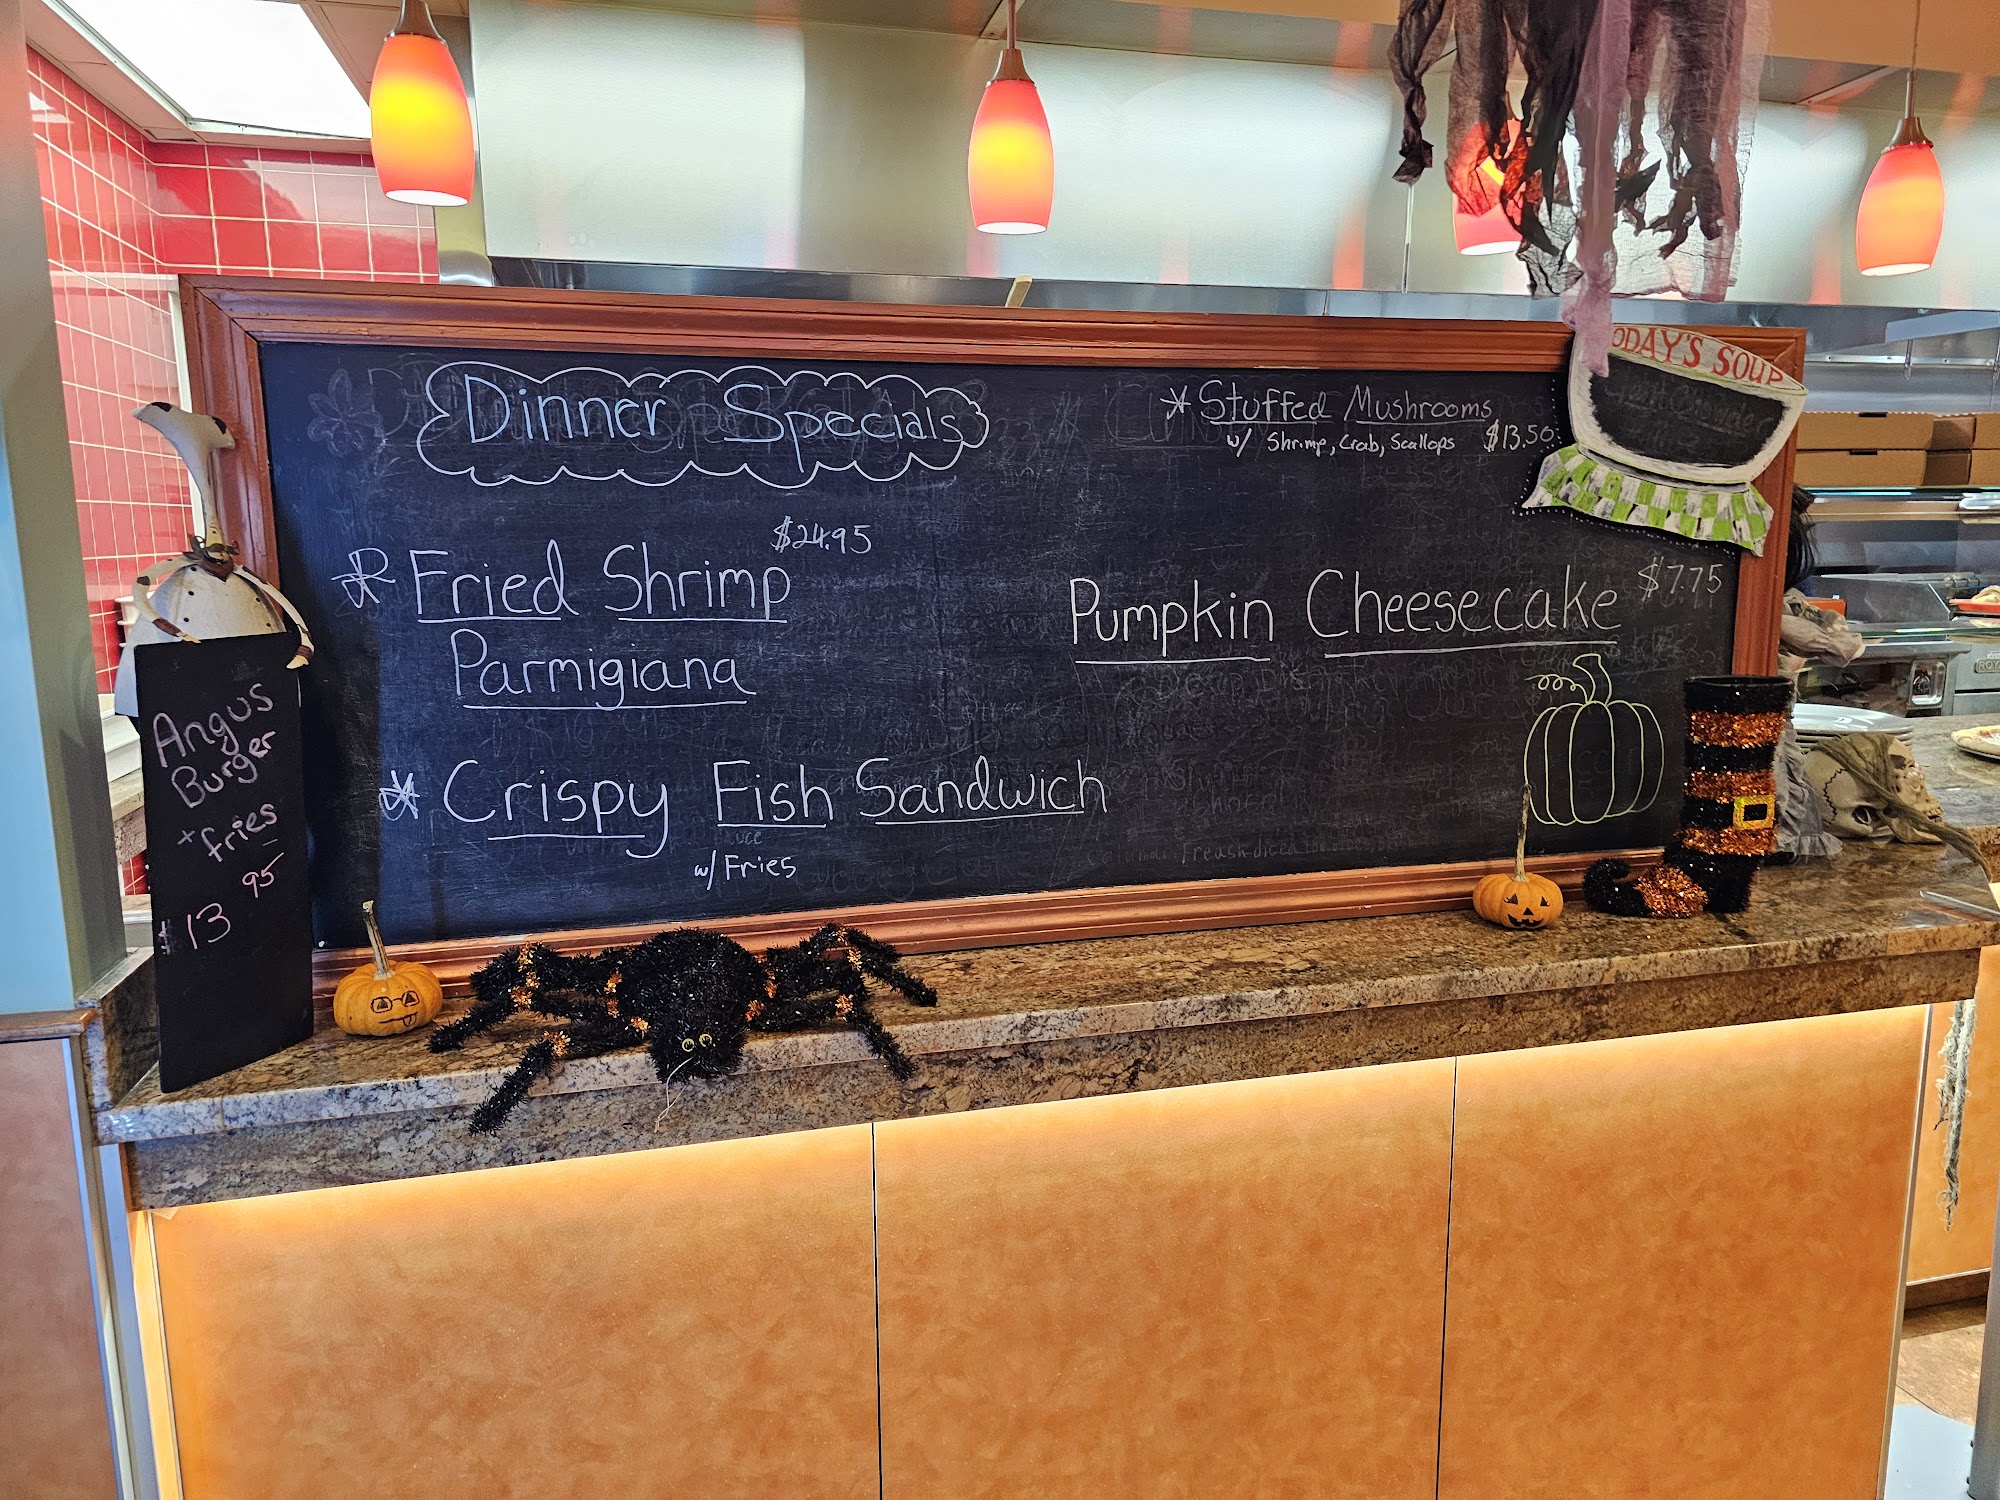 Dinner Specials
Fried Shrimp $24.95
Parmigiana
Crispy Fish Sandwich
w/ Fries
Stuffed Mushrooms
w/ Shrimp, Crab, Scallops $13.50
Pumpkin Cheesecake $7.75
ODAY'S SOUP
Chowder
Angus
Burger
+ fries
$13 95